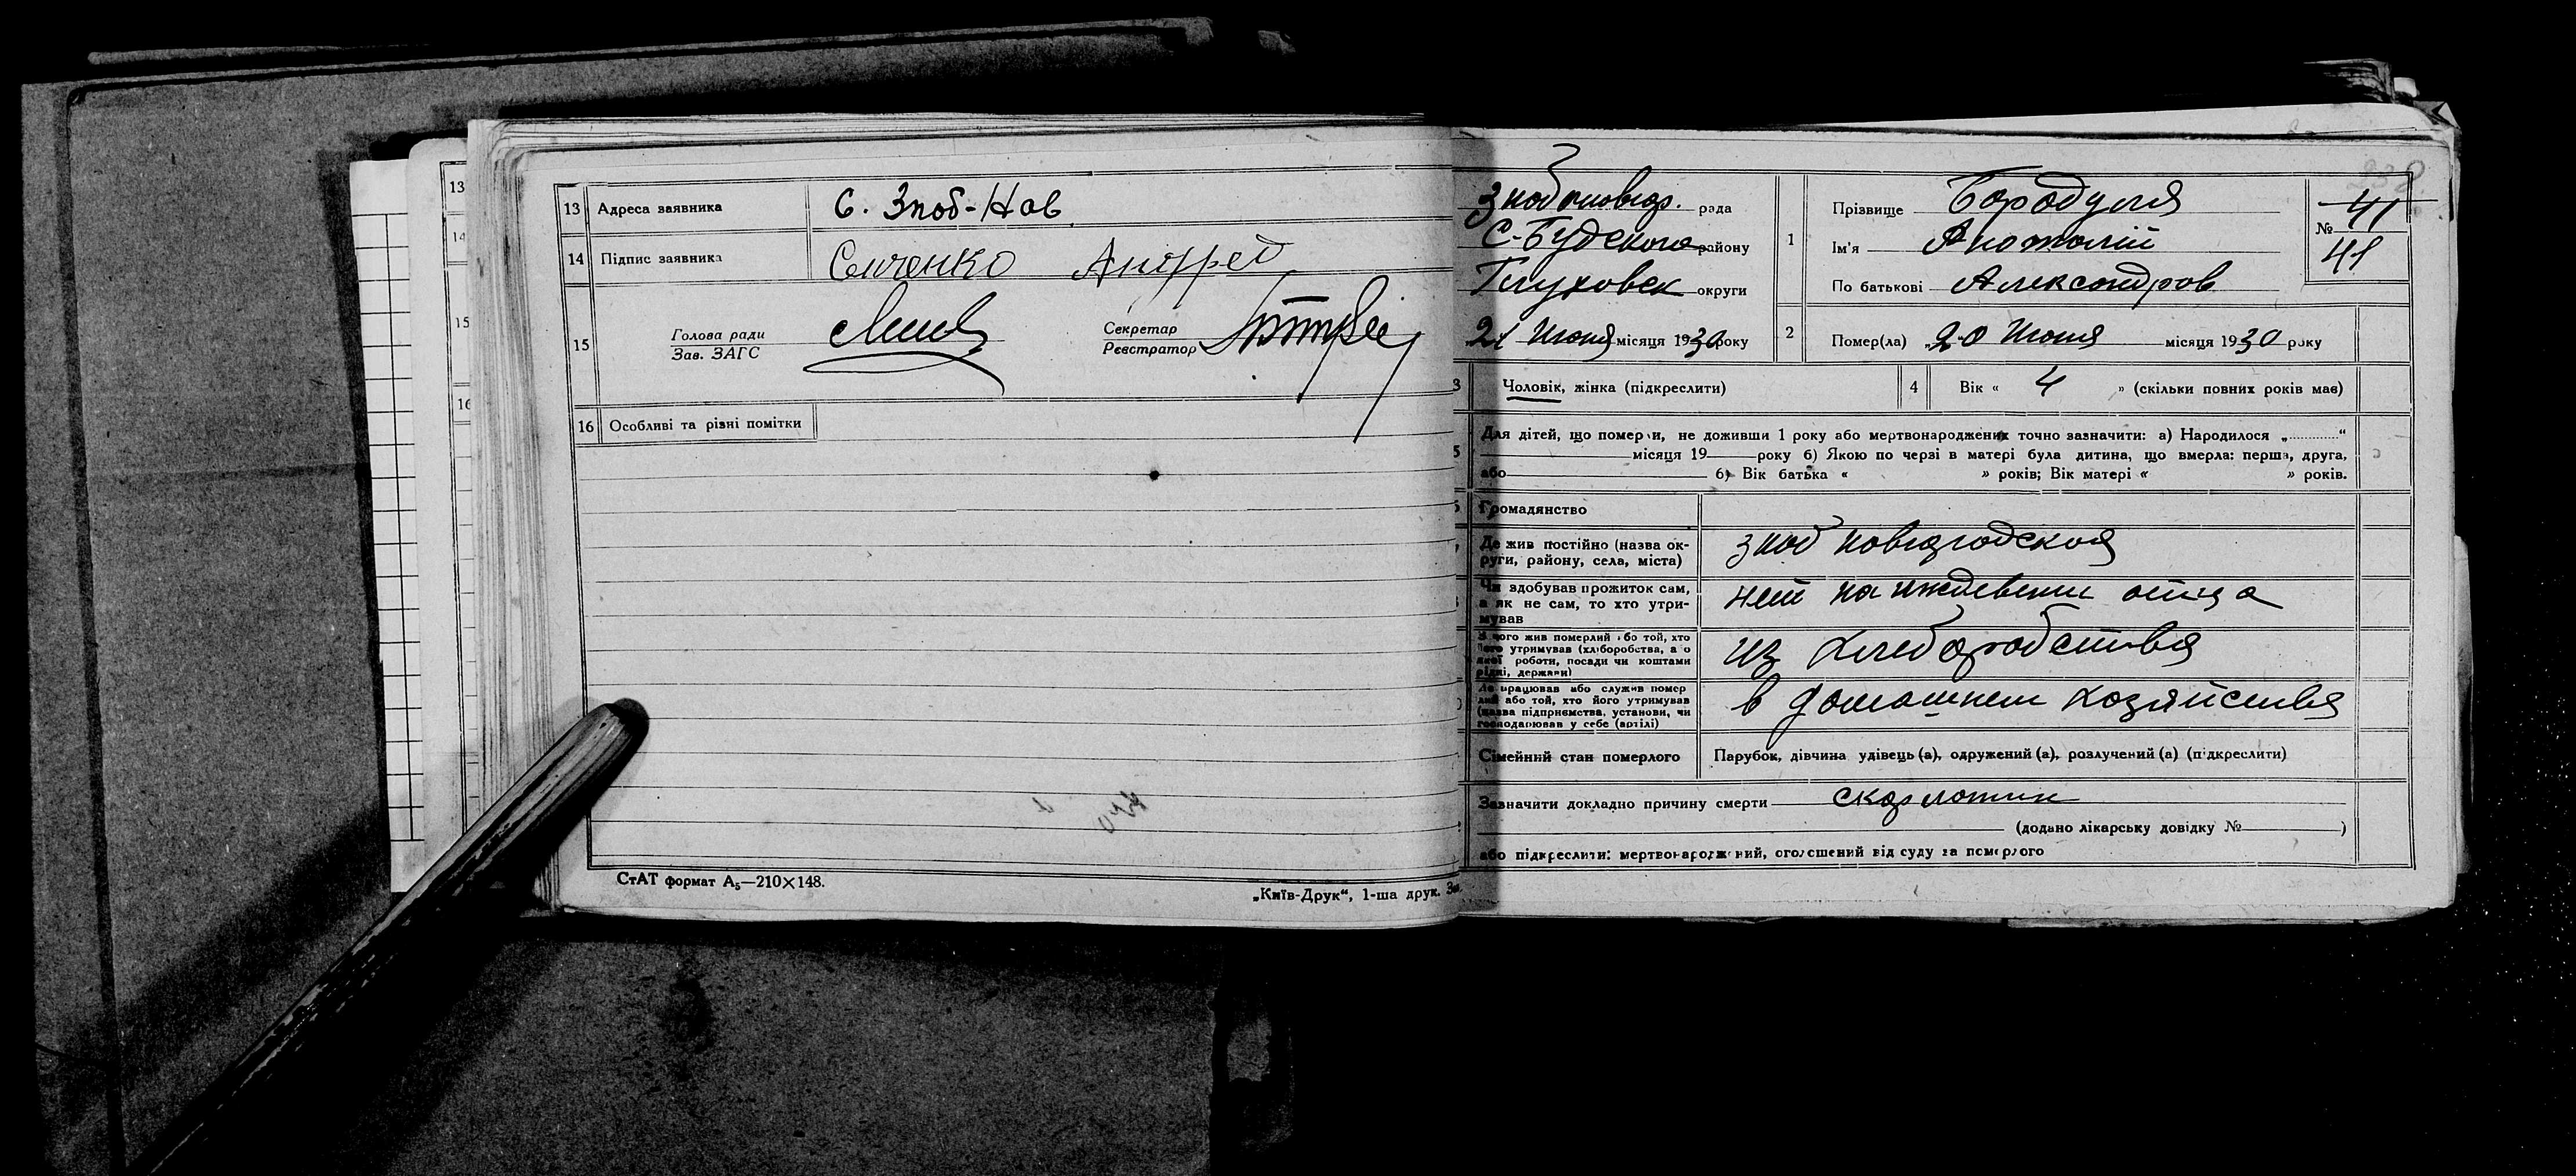 13
14
15
16
13 Адреса заявника С. Зноб-Нов
14 Підпис заявника Сенченко Андрей
15 Голова ради
Зав. ЗАГС
Секретар
Реєстратор
16 Особливі та різні помітки
СтАТ формат А₅—210×148.
„Київ-Друк“, 1-ша друк. За
Знобоновгор. рада
С-Будского району
Глуховск округи
21 Июня місяця 1930 року
1 Прізвище Бородуля
Ім'я Анотолій
По батькові Александров
№ 41
41
2 Помер(ла) „20 Июня місяця 1930 року
3 Чоловік, жінка (підкреслити)
4 Вік « 4 » (скільки повних років має)
Для дітей, що померли, не доживши 1 року або мертвонароджених точно зазначити: а) Народилося „............“
місяця 19 року б) Якою по черзі в матері була дитина, що вмерла: перша, друга,
або б) Вік батька « » років; Вік матері « » років.
Громадянство
Де жив постійно (назва ок-
руги, району, села, міста)
Зноб новгородская
Чи здобував прожиток сам,
а як не сам, то хто утри-
мував
нет на иждевении отца
З чого жив померлий або той, хто
його утримував (хліборобства, а о
якої роботи, посади чи коштами
рідні, держави)
из хлеборобства
Де працював або служив помер
лий або той, хто його утримував
(назва підприємства, установи, чи
господарював у себе (артілі)
в домашнем хозяйства
Сімейний стан померлого
Парубок, дівчина удівець (а), одружений (а), розлучений (а) (підкреслити)
Зазначити докладно причину смерти скарлотин
(додано лікарську довідку № )
або підкреслити: мертвонароджений, оголошений від суду за померлого